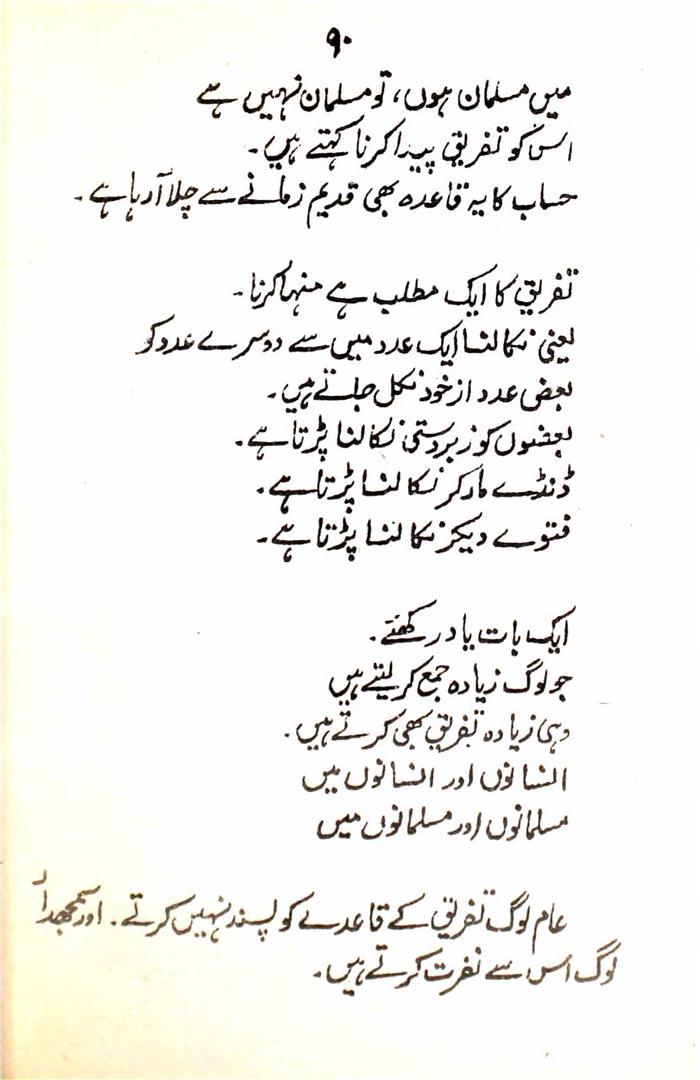 ۹۰
میں مسلمان ہوں، تو مسلمان نہیں ہے
اس کو تفریق پیدا کرنا کہتے ہیں۔
حساب کا یہ قاعدہ بھی قدیم زمانے سے چلا آ رہا ہے۔
تفریق کا ایک مطلب ہے منہا کرنا۔
یعنی نکالنا ایک عدد میں سے دوسرے عدد کو
بعض عدد از خود نکل جاتے ہیں۔
بعضوں کو زبردستی نکالنا پڑتا ہے۔
ڈنڈے مار کر نکالنا پڑتا ہے۔
فتوے دیکر نکالنا پڑتا ہے۔
ایک بات یاد رکھئے۔
جو لوگ زیادہ جمع کر لیتے ہیں
وہی زیادہ تفریق بھی کرتے ہیں۔
انسانوں اور انسانوں میں
مسلمانوں اور مسلمانوں میں
عام لوگ تفریق کے قاعدے کو پسند نہیں کرتے۔ اور سمجھدار
لوگ اس سے نفرت کرتے ہیں۔